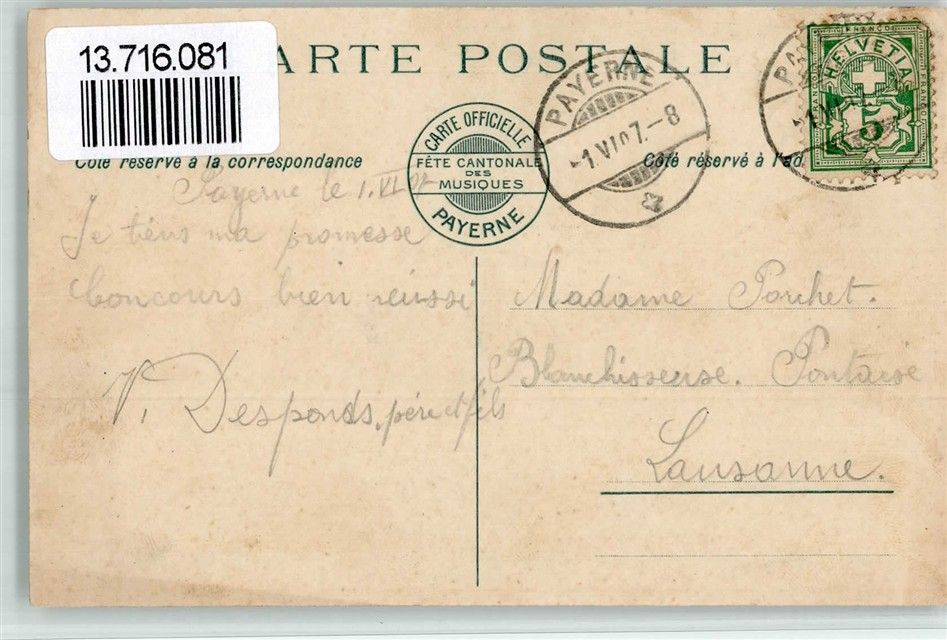 13.716.081
ARTE POSTALE
Côté réservé à la correspondance
Côté réservé à l'ad
CARTE OFFICIELLE
FÊTE CANTONALE
DES
MUSIQUES
PAYERNE
PAYERNE
1.VI.07.-8
HELVETIA
FRANCO
5
Payerne le 1.VI 07
Je tiens ma promesse
Concours bien réussi
V. Desponds, père et fils
Madame Porchet.
Blanchisseuse. Pontaise
Lausanne.